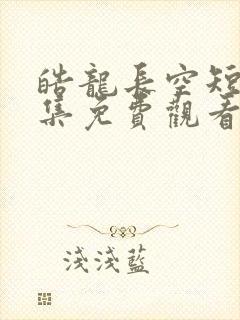 皓龍長空短
集免費觀看
淺淺藍